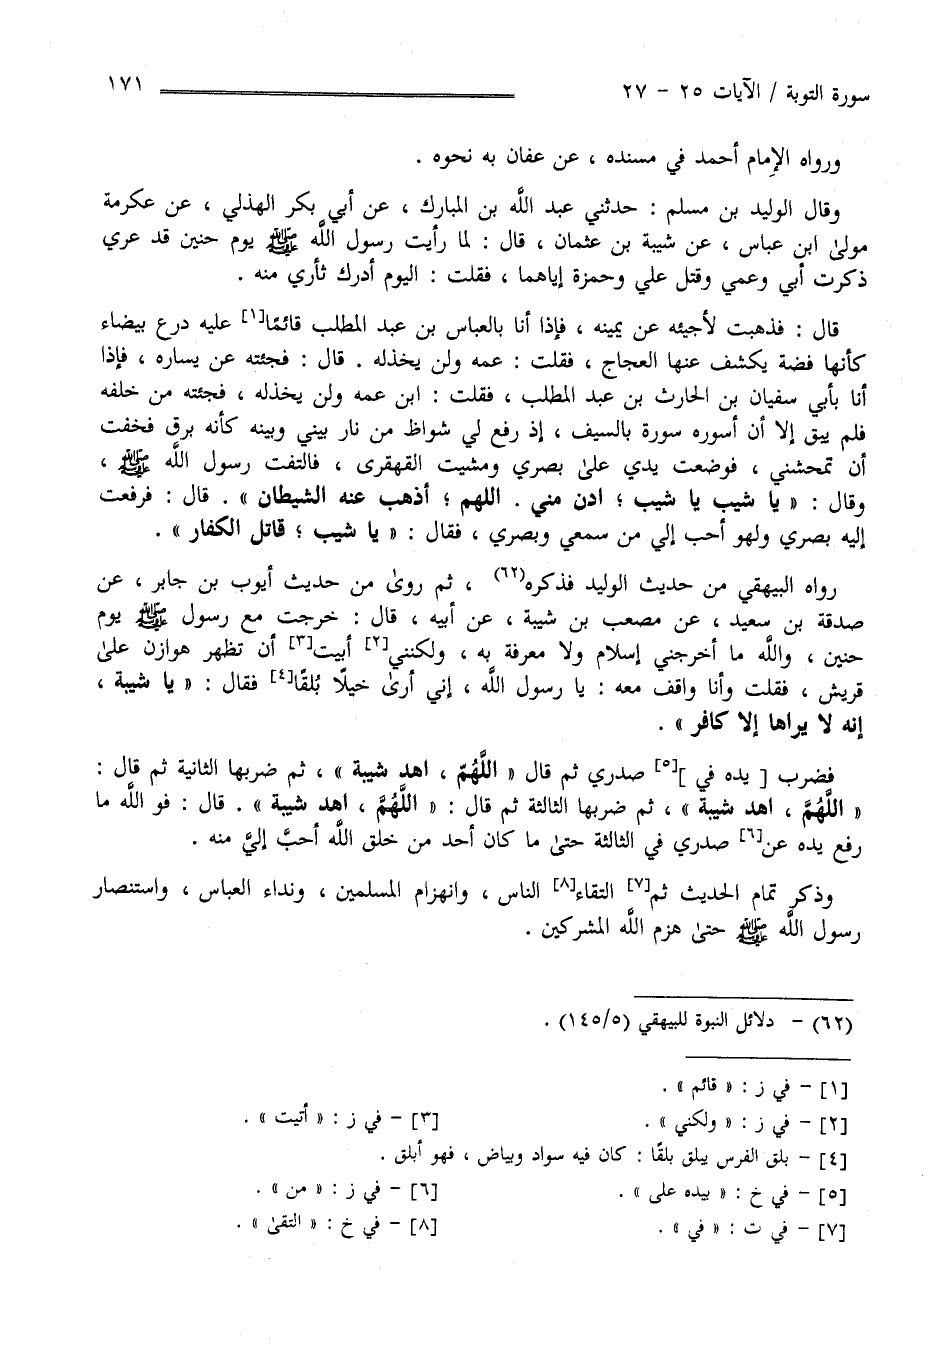 سورة التوبة / الآيات ٢٥ - ٢٧ ١٧١
ورواه الإمام أحمد في مسنده ، عن عفان به نحوه .
وقال الوليد بن مسلم : حدثني عبد اللَّه بن المبارك ، عن أبي بكر الهذلي ، عن عكرمة
مولىٰ ابن عباس ، عن شيبة بن عثمان ، قال : لما رأيت رسول اللَّه ﷺ يوم حنين قد عري
ذكرت أبي وعمي وقتل علي وحمزة إياهما ، فقلت : اليوم أدرك ثأري منه .
قال : فذهبت لأجيئه عن يمينه ، فإذا أنا بالعباس بن عبد المطلب قائمًا[١] عليه درع بيضاء
كأنها فضة يكشف عنها العجاج ، فقلت : عمه ولن يخذله . قال : فجئته عن يساره ، فإذا
أنا بأبي سفيان بن الحارث بن عبد المطلب ، فقلت : ابن عمه ولن يخذله ، فجئته من خلفه
فلم يبق إلا أن أسوره سورة بالسيف ، إذ رفع لي شواظ من نار بيني وبينه كأنه برق فخفت
أن تمحشني ، فوضعت يدي علىٰ بصري ومشيت القهقرى ، فالتفت رسول اللَّه ﷺ ،
وقال : « يا شيب يا شيب ؛ ادن مني . اللهم ؛ أذهب عنه الشيطان » . قال : فرفعت
إليه بصري ولهو أحب إلي من سمعي وبصري ، فقال : « يا شيب ؛ قاتل الكفار » .
رواه البيهقي من حديث الوليد فذكره(٦٢) ، ثم روىٰ من حديث أيوب بن جابر ، عن
صدقة بن سعيد ، عن مصعب بن شيبة ، عن أبيه ، قال : خرجت مع رسول ﷺ يوم
حنين ، واللَّه ما أخرجني إسلام ولا معرفة به ، ولكنني[٢] أبيت[٣] أن تظهر هوازن علىٰ
قريش ، فقلت وأنا واقف معه : يا رسول اللَّه ، إني أرىٰ خيلًا بُلقًا[٤] فقال : « يا شيبة ،
إنه لا يراها إلا كافر » .
فضرب [ يده في ][٥] صدري ثم قال « اللَّهُمّ ، اهد شيبة » ، ثم ضربها الثانية ثم قال :
« اللَّهُمَّ ، اهد شيبة » ، ثم ضربها الثالثة ثم قال : « اللَّهُمَّ ، اهد شيبة » . قال : فو اللَّه ما
رفع يده عن[٦] صدري في الثالثة حتىٰ ما كان أحد من خلق اللَّه أحبَّ إليَّ منه .
وذكر تمام الحديث ثم[٧] التقاء[٨] الناس ، وانهزام المسلمين ، ونداء العباس ، واستنصار
رسول اللَّه ﷺ حتىٰ هزم اللَّه المشركين .
(٦٢) - دلائل النبوة للبيهقي (١٤٥/٥) .
[١] - في ز : « قائم » .
[٢] - في ز : « ولكني » . [٣] - في ز : « أتيت » .
[٤] - بلق الفرس يبلق بلقًا : كان فيه سواد وبياض ، فهو أبلق .
[٥] - في خ : « بيده على » . [٦] - في ز : « من » .
[٧] - في ت : « في » . [٨] - في خ : « التقىٰ » .